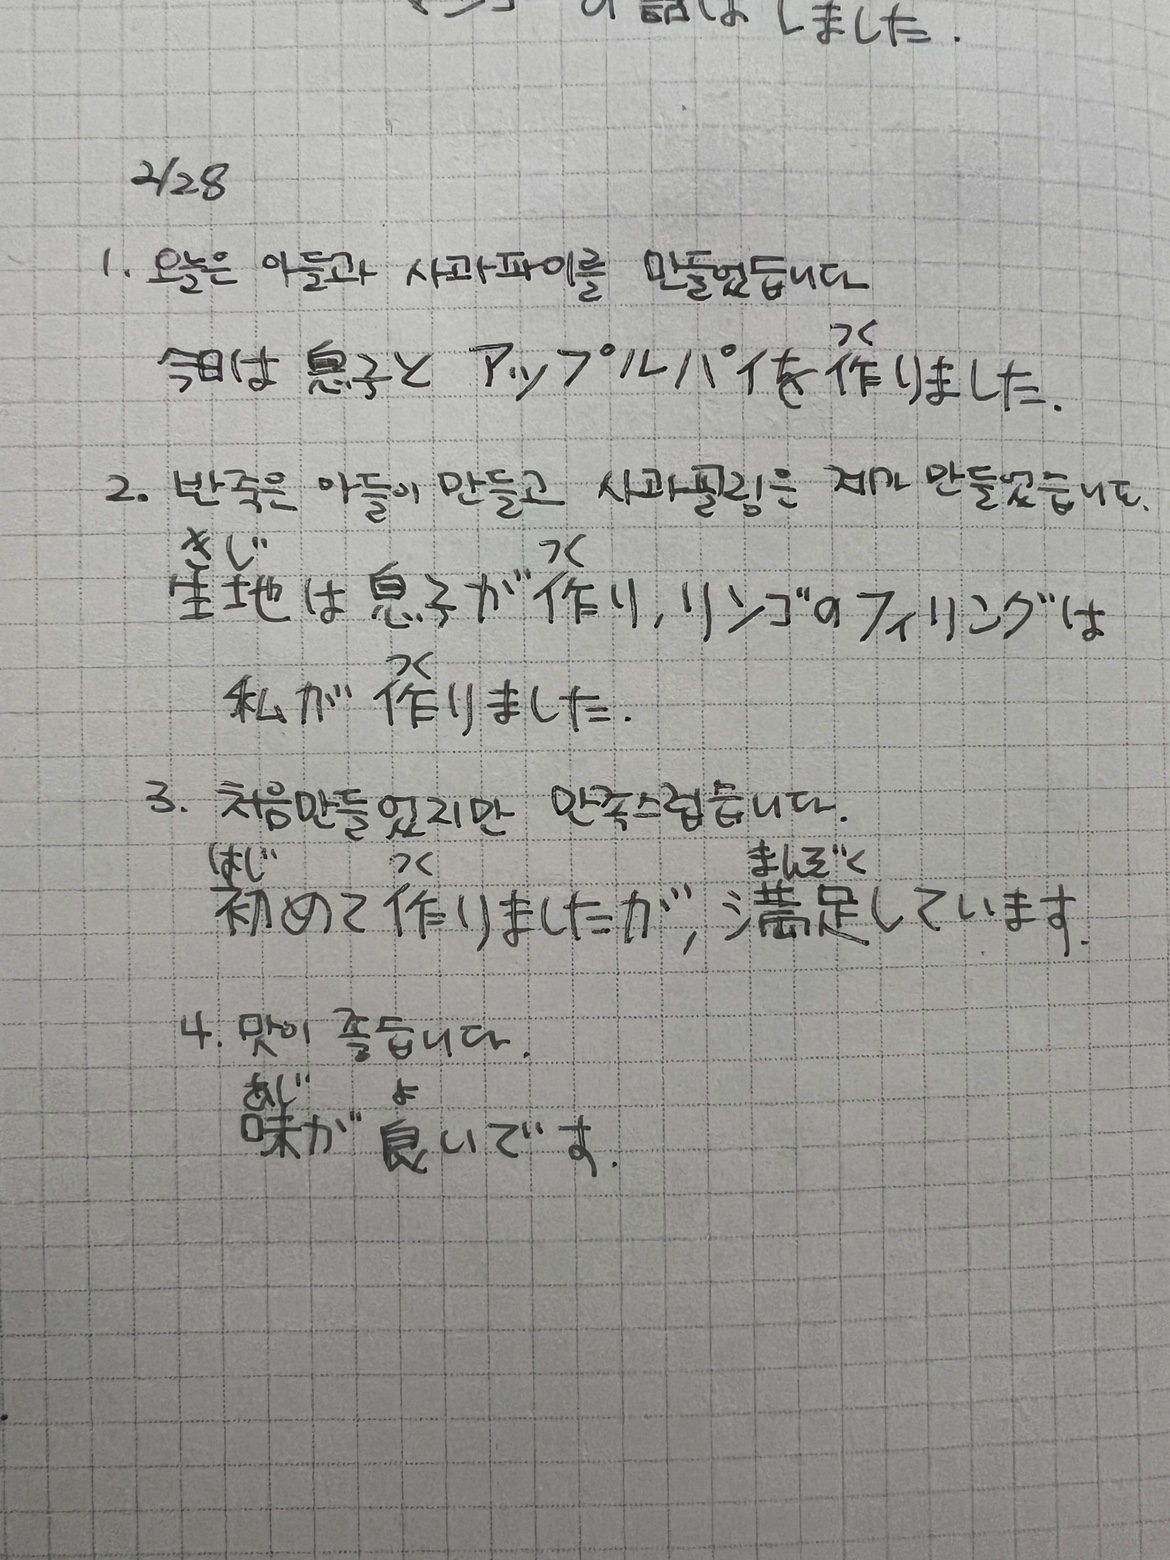 の話はしました.
2/28
1. 오늘은 아들과 사과파이를 만들었습니다
つく
今日は 息子と アップルパイを 作りました.
2. 반죽은 아들이 만들고 사과필링은 제가 만들었습니다.
きじ つく
生地は 息子が 作り, リンゴの フィリングは
つく
私が 作りました.
3. 처음만들었지만 만족스럽습니다.
はじ つく まんぞく
初めて 作りましたが, 満足しています.
4. 맛이 좋습니다.
あじ よ
味が 良いです.